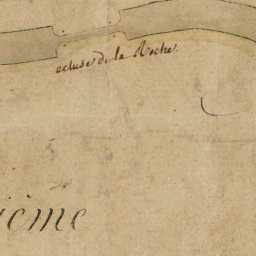 ecluse de la Roche
ième